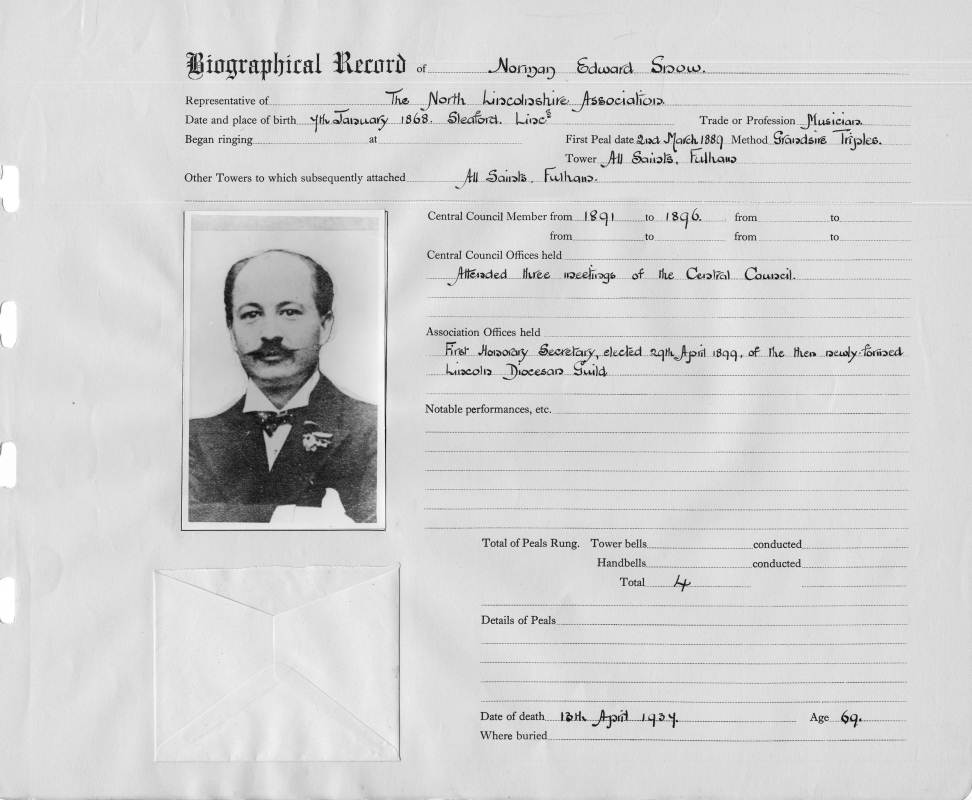 Biographical Record of Norman Edward Snow.
Representative of The North Lincolnshire Association
Date and place of birth 7th January 1868. Sleaford. Lincs Trade or Profession Musician.
Began ringing at First Peal date 2nd March 1889 Method Grandsire Triples.
Tower All Saints, Fulham
Other Towers to which subsequently attached All Saints, Fulham.
Central Council Member from 1891 to 1896. from to
from to from to
Central Council Offices held
Attended three meetings of the Central Council.
Association Offices held
First Honorary Secretary, elected 29th April 1899, of the then newly-formed
Lincoln Diocesan Guild
Notable performances, etc.
Total of Peals Rung. Tower bells conducted
Handbells conducted
Total 4
Details of Peals
Date of death 13th April 1937. Age 69.
Where buried